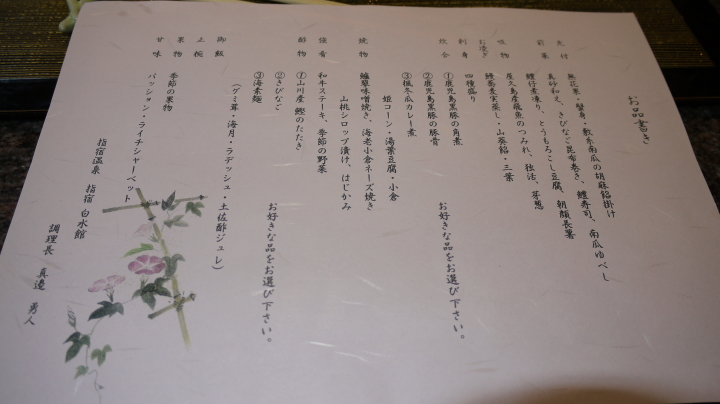 お品書き
先付　無花果・蟹身・敷糸南瓜の胡麻餡掛け
前菜　真砂和え、きびなご昆布巻き、鱧寿司、南瓜ゆべし
鱧行煮凍り、とうもろこし豆腐、朝顔長薯
吸物　屋久島産飛魚のつみれ、独活、芽葱
お凌ぎ　鰻蕎麦実蒸し・山葵餡・三葉
刺身　四種盛り
炊合　①鹿児島黒豚の角煮
②鹿児島黒豚の豚骨　お好きな品をお選び下さい。
③楓冬瓜カレー煮
姫コーン・湯葉豆腐・小倉
焼物　鱸翠味噌焼き、海老小倉チーズ焼き
山桃シロップ漬け、はじかみ
強肴　和牛ステーキ、季節の野菜
酢物　①山川産 鰹のたたき
②きびなご　お好きな品をお選び下さい。
③海素麺
（グミ茸・海月・ラデッシュ・土佐酢ジュレ）
御飯
止椀
果物　季節の果物
甘味　パッション・ライチシャーベット
指宿温泉　指宿 白水館
調理長　真邉 勇人